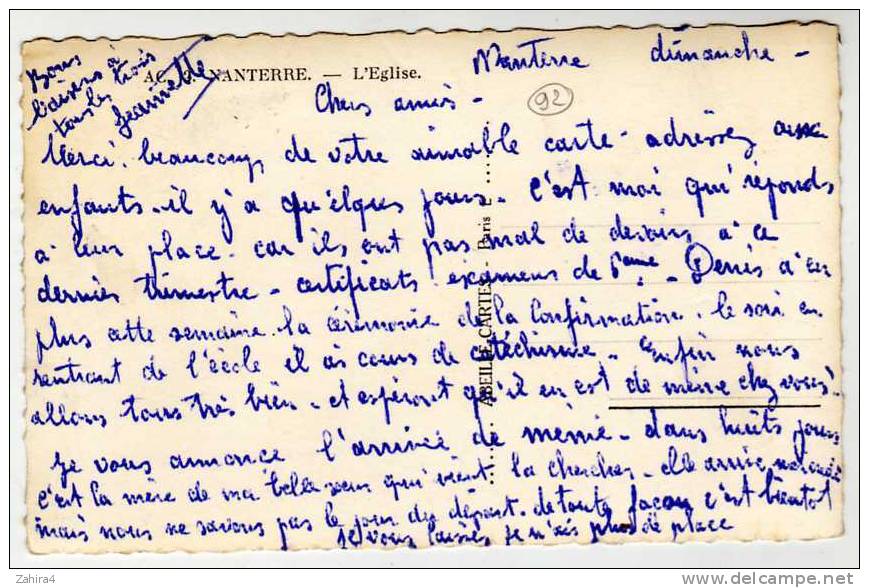 Nanterre dimanche -
AC NANTERRE. — L'Eglise.
Bons
baisers à
tous les trois
Jeannette
Chers amis -
92
Merci beaucoup de votre aimable carte - adressez aux
enfants - il y'a quelques jours - C'est moi qui réponds
à leur place - car ils ont pas mal de devoirs à ce
dernier trimestre - certificats examens de 6ème - Denis à en
plus cette semaine la cérémonie de la Confirmation - le soir en
rentrant de l'école il às cours de catéchisme - Enfin nous
allons tous très bien - et espéront qu'il en est de même chez vous -
Je vous annonce l'arrivée de mémé - dans huits jours
c'est la mère de ma belle sœur qui vient la chercher - elle arrive
mais nous ne savons pas le jour du départ - de toute façon c'est bientot
je vous laisse, je n'ais plus de place
ABEILLE-CARTES - Paris
Zahira4
delcampe.net